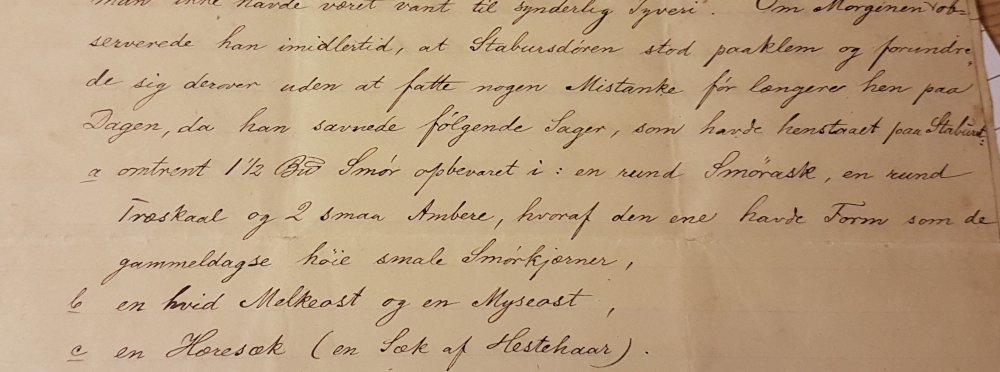 man ikke havde været vant til synderlig Tyveri. Om Morginen ob=
serverede han imidlertid, at Stabursdören stod paaklem og forundre=
de sig derover uden at fatte nogen Mistanke för længere hen paa
Dagen, da han savnede fölgende Sager, som havde henstaaet paa Staburet:
a omtrent 1 1/2 Smör opbevaret i: en rund Smörask, en rund
Træskaal og 2 smaa Ambere, hvoraf den ene havde Form som de
gammeldagse höie smale Smörkjærner,
b en hvid Melkeost og en Myseost,
c en Hæresæk (en Sæk af Hestehaar).